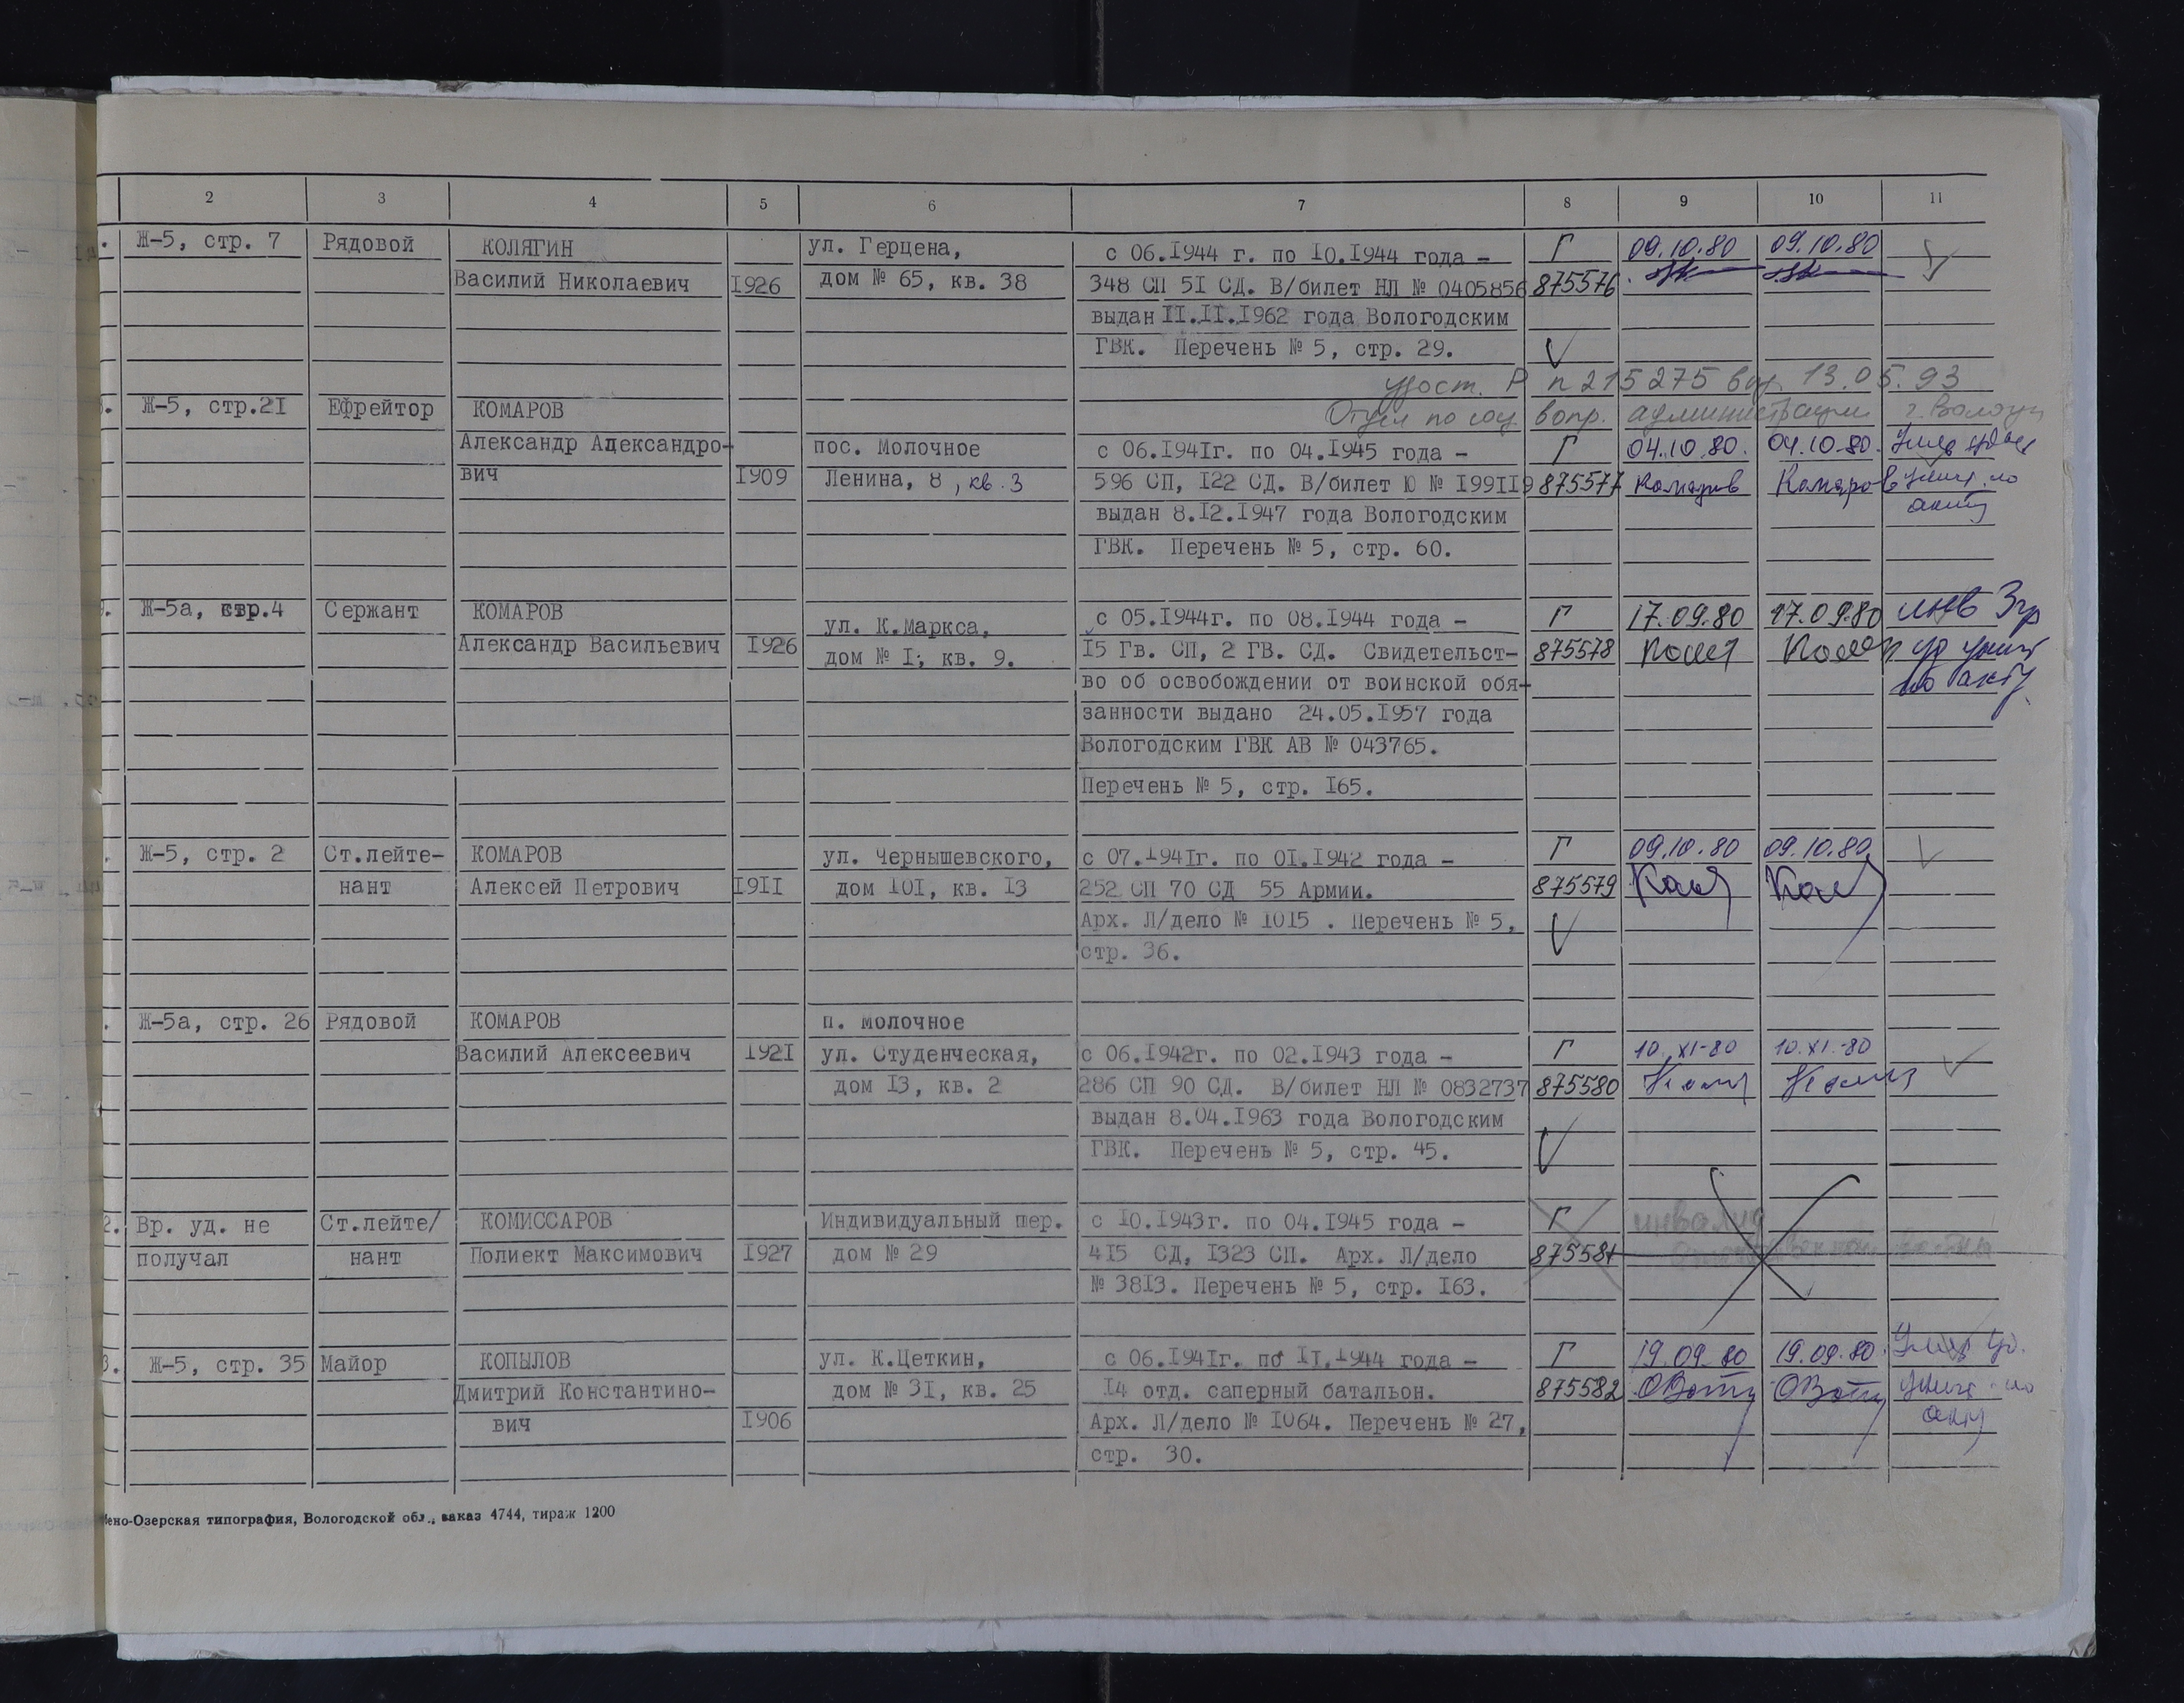 2 3 4 5 6 7 8 9 10 11
Ж-5, стр. 7 Рядовой КОЛЯГИН ул. Герцена, с 06.1944 г. по 10.1944 года - Г 09.10.80 09.10.80
Василий Николаевич 1926 дом № 65, кв. 38 348 СП 51 СД. В/билет НЛ № 0405856 875576
выдан 11.11.1962 года Вологодским
ГВК. Перечень № 5, стр. 29.
удост. Р n 215275 выд. 13.05.93
Ж-5, стр.21 Ефрейтор КОМАРОВ Отдел по соц вопр. администрации г. Вологды
Александр Александро- пос. Молочное с 06.1941г. по 04.1945 года - Г 04.10.80. 04.10.80.
вич 1909 Ленина, 8, кв. 3 596 СП, 122 СД. В/билет Ю № 199119 875577 Комаров Комаров унич. по
выдан 8.12.1947 года Вологодским акту
ГВК. Перечень № 5, стр. 60.
Ж-5а, стр.4 Сержант КОМАРОВ ул. К.Маркса, с 05.1944г. по 08.1944 года - Г 17.09.80 17.09.80 инв 3гр
Александр Васильевич 1926 дом № 1, кв. 9. 15 Гв. СП, 2 ГВ. СД. Свидетельст- 875578 уд унич
во об освобождении от воинской обя- по акту
занности выдано 24.05.1957 года
Вологодским ГВК АВ № 043765.
Перечень № 5, стр. 165.
Ж-5, стр. 2 Ст.лейте- КОМАРОВ ул. Чернышевского, с 07.1941г. по 01.1942 года - Г 09.10.80 09.10.80
нант Алексей Петрович 1911 дом 101, кв. 13 252 СП 70 СД 55 Армии. 875579
Арх. Л/дело № 1015 . Перечень № 5,
стр. 36.
Ж-5а, стр. 26 Рядовой КОМАРОВ п. Молочное
Василий Алексеевич 1921 ул. Студенческая, с 06.1942г. по 02.1943 года - Г 10.XI-80 10.XI.-80
дом 13, кв. 2 286 СП 90 СД. В/билет НЛ № 0832737 875580
выдан 8.04.1963 года Вологодским
ГВК. Перечень № 5, стр. 45.
2. Вр. уд. не Ст.лейте/ КОМИССАРОВ Индивидуальный пер. с 10.1943г. по 04.1945 года - Г инвалид
получал нант Полиект Максимович 1927 дом № 29 415 СД, 1323 СП. Арх. Л/дело 875581 Отечественной войны
№ 3813. Перечень № 5, стр. 163.
3. Ж-5, стр. 35 Майор КОПЫЛОВ ул. К.Цеткин, с 06.1941г. по 11.1944 года - Г 19.09.80 19.09.80. Умер уд.
Дмитрий Константино- дом № 31, кв. 25 14 отд. саперный батальон. 875582 унич по
вич 1906 Арх. Л/дело № 1064. Перечень № 27, акту
стр. 30.
ено-Озерская типография, Вологодской обл., заказ 4744, тираж 1200